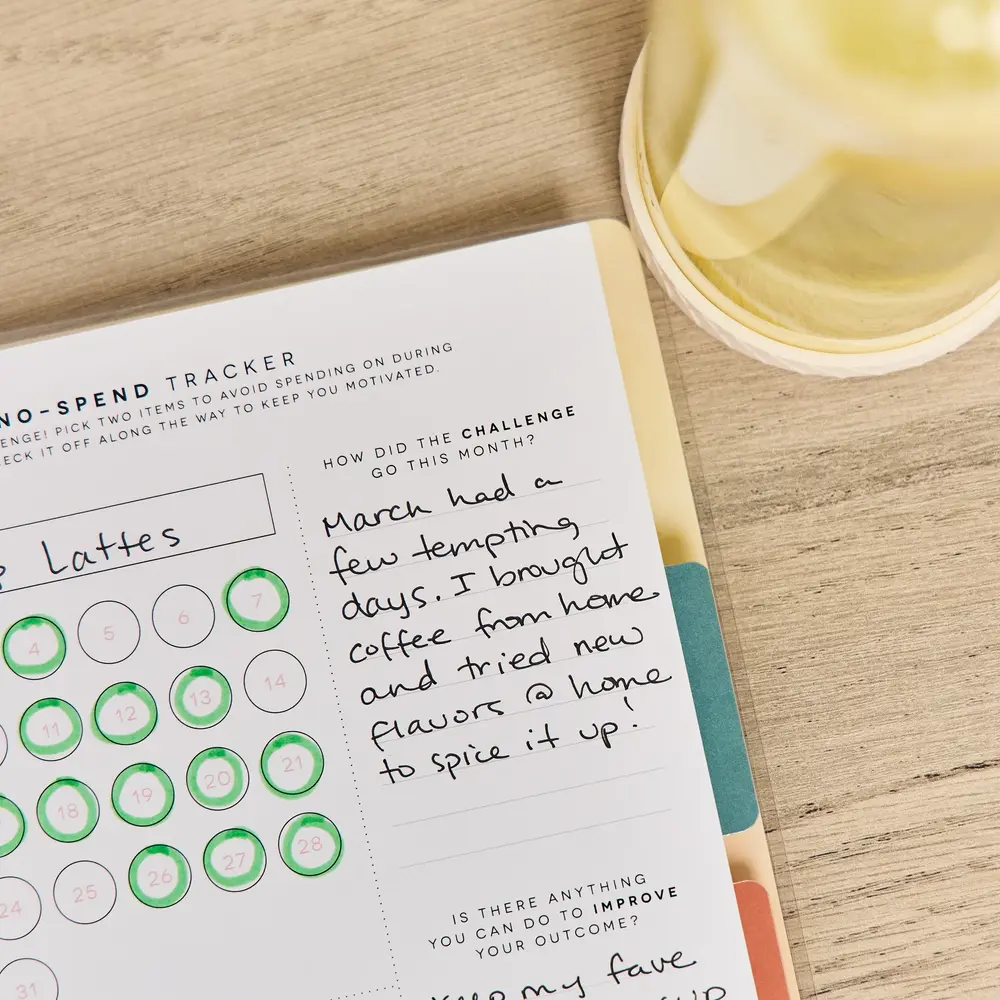 NO-SPEND TRACKER
PICK TWO ITEMS TO AVOID SPENDING ON DURING
IT OFF ALONG THE WAY TO KEEP YOU MOTIVATED.
Lattes
4 5 6 7
11 12 13 14
18 19 20 21
24 25 26 27 28
31
HOW DID THE CHALLENGE
GO THIS MONTH?
March had a
few tempting
days. I brought
coffee from home
and tried new
flavors @ home
to spice it up!
IS THERE ANYTHING
YOU CAN DO TO IMPROVE
YOUR OUTCOME?
my fave